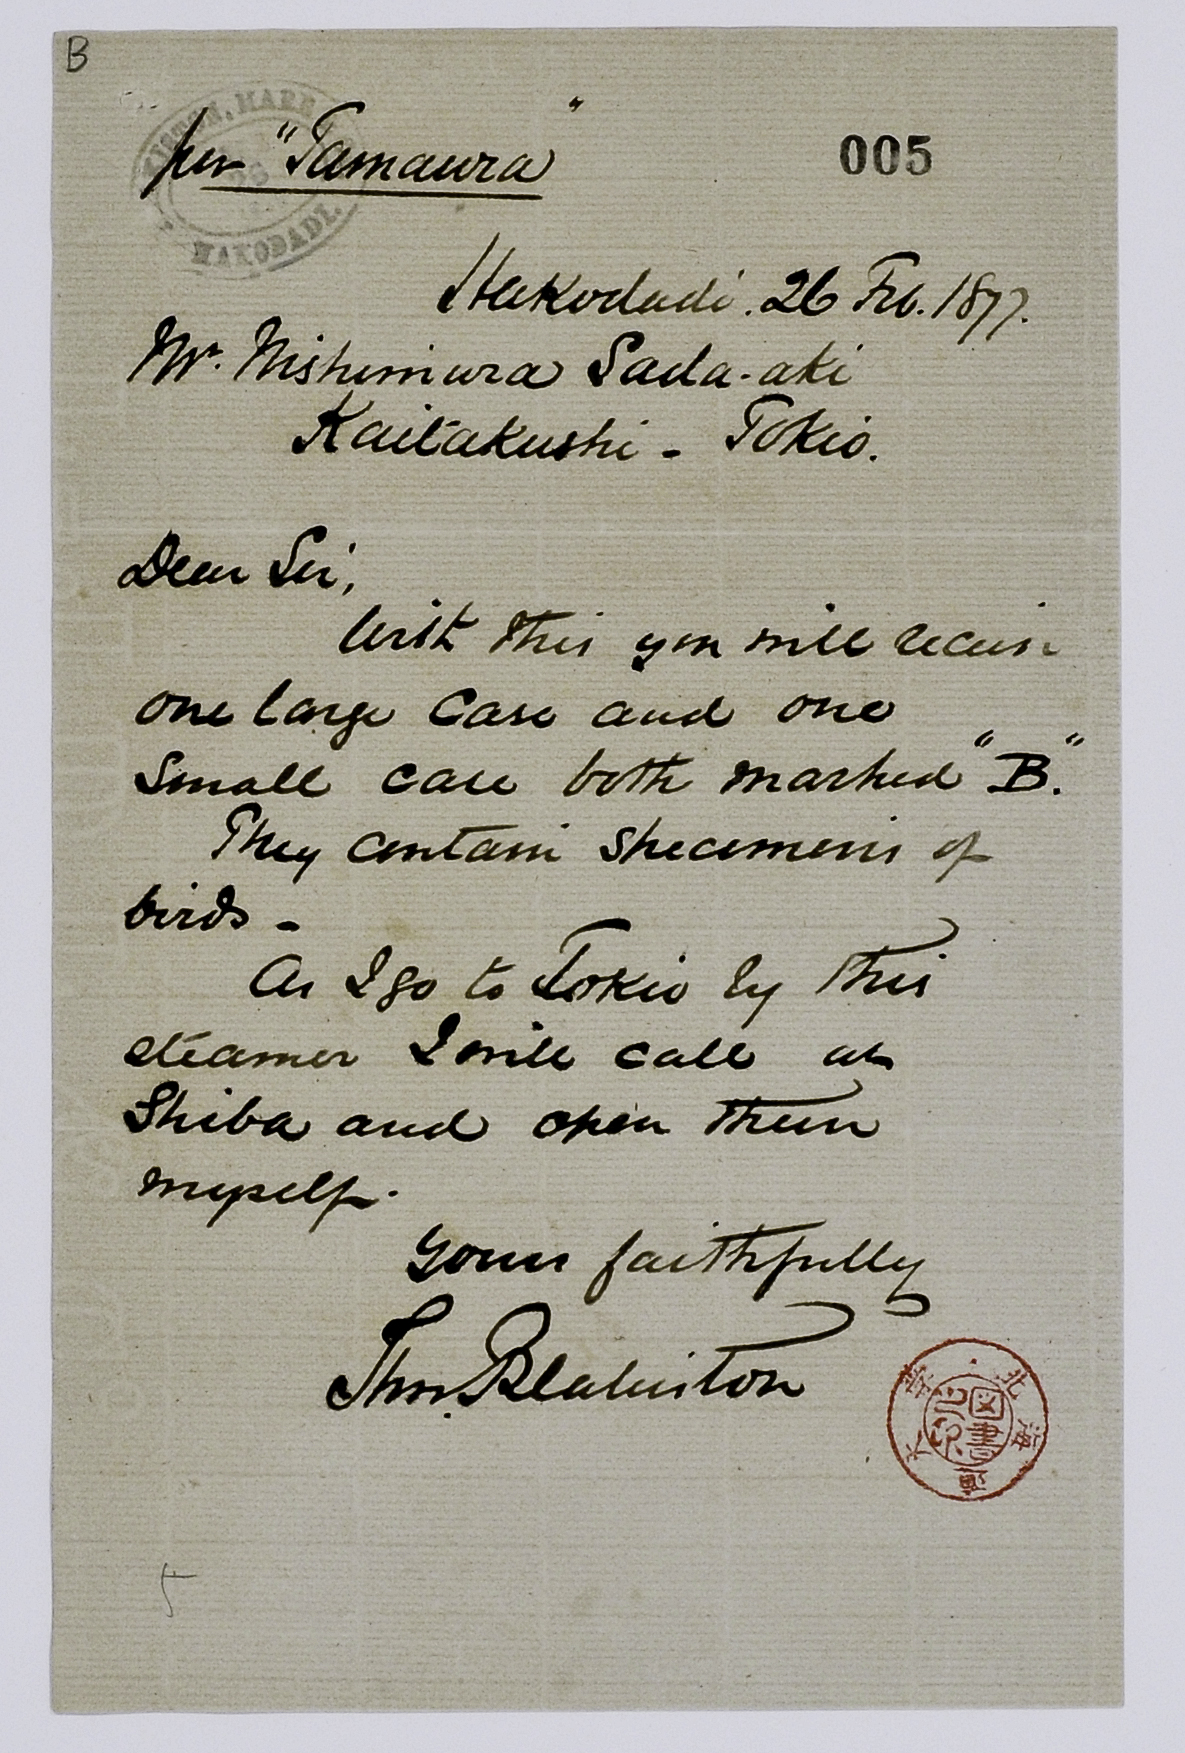 B
per "Tamaura"
005
HAKODADI.
Hakodadi. 26 Feb. 1877.
Mr. Nishimura Sada-aki
Kaitakushi - Tokio.
Dear Sir,
With this you will receive
one large case and one
small case both marked "B."
They contain specimens of
birds -
As I go to Tokio by this
steamer I will call at
Shiba and open them
myself.
Yours faithfully
Thos. Blakiston
北海道大学
図書
5